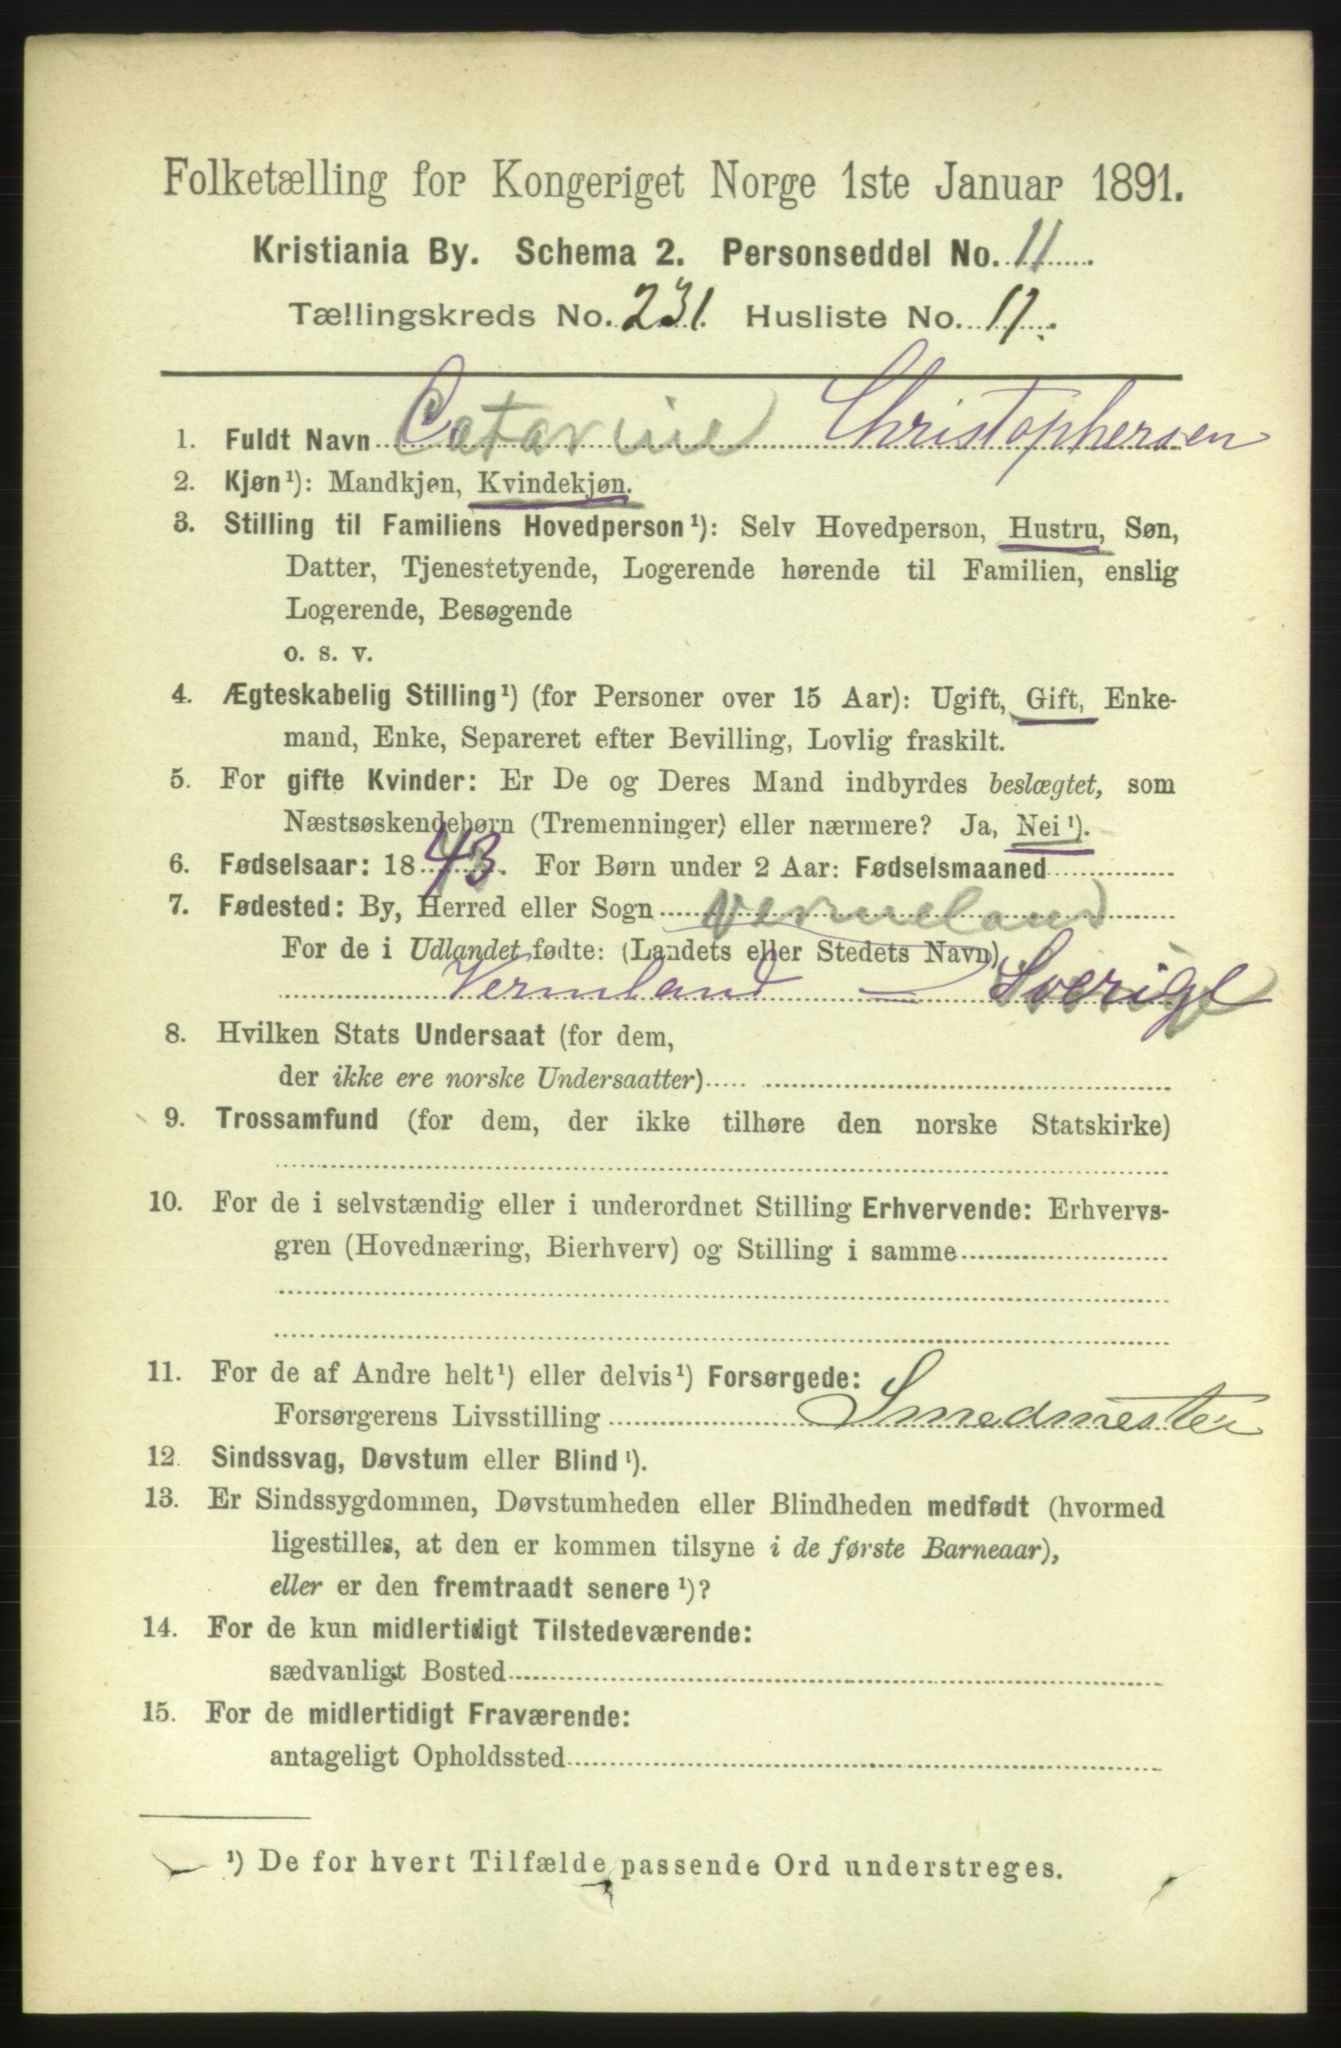 Folketælling for Kongeriget Norge 1ste Januar 1891.
Kristiania By. Schema 2. Personseddel No. 11
Tællingskreds No. 231. Husliste No. 17.
1. Fuldt Navn Catarine Christophersen
2. Kjøn¹): Mandkjøn, Kvindekjøn.
3. Stilling til Familiens Hovedperson¹): Selv Hovedperson, Hustru, Søn,
Datter, Tjenestetyende, Logerende hørende til Familien, enslig
Logerende, Besøgende
o. s. v.
4. Ægteskabelig Stilling¹) (for Personer over 15 Aar): Ugift, Gift, Enke-
mand, Enke, Separeret efter Bevilling, Lovlig fraskilt.
5. For gifte Kvinder: Er De og Deres Mand indbyrdes beslægtet, som
Næstsøskendebørn (Tremenninger) eller nærmere? Ja, Nei¹).
6. Fødselsaar: 1843. For Børn under 2 Aar: Fødselsmaaned
7. Fødested: By, Herred eller Sogn Vermeland
For de i Udlandet fødte: (Landets eller Stedets Navn)
Vermland - Sverige
8. Hvilken Stats Undersaat (for dem,
der ikke ere norske Undersaatter)
9. Trossamfund (for dem, der ikke tilhøre den norske Statskirke)
10. For de i selvstændig eller i underordnet Stilling Erhvervende: Erhvervs-
gren (Hovednæring, Bierhverv) og Stilling i samme
11. For de af Andre helt¹) eller delvis¹) Forsørgede:
Forsørgerens Livsstilling Smedmester
12. Sindssvag, Døvstum eller Blind¹).
13. Er Sindssygdommen, Døvstumheden eller Blindheden medfødt (hvormed
ligestilles, at den er kommen tilsyne i de første Barneaar),
eller er den fremtraadt senere¹)?
14. For de kun midlertidigt Tilstedeværende:
sædvanligt Bosted
15. For de midlertidigt Fraværende:
antageligt Opholdssted
¹) De for hvert Tilfælde passende Ord understreges.